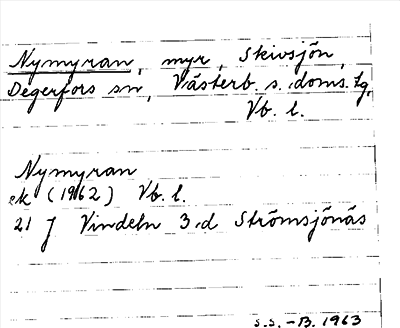 Nymyran, myr, Skivsjön,
Degerfors sn, Västerb. s. doms. tg,
Vb. l.
Nymyran
ek (1962) Vb. l.
21 J Vindeln 3 d Strömsjönäs
S.S. -B. 1963